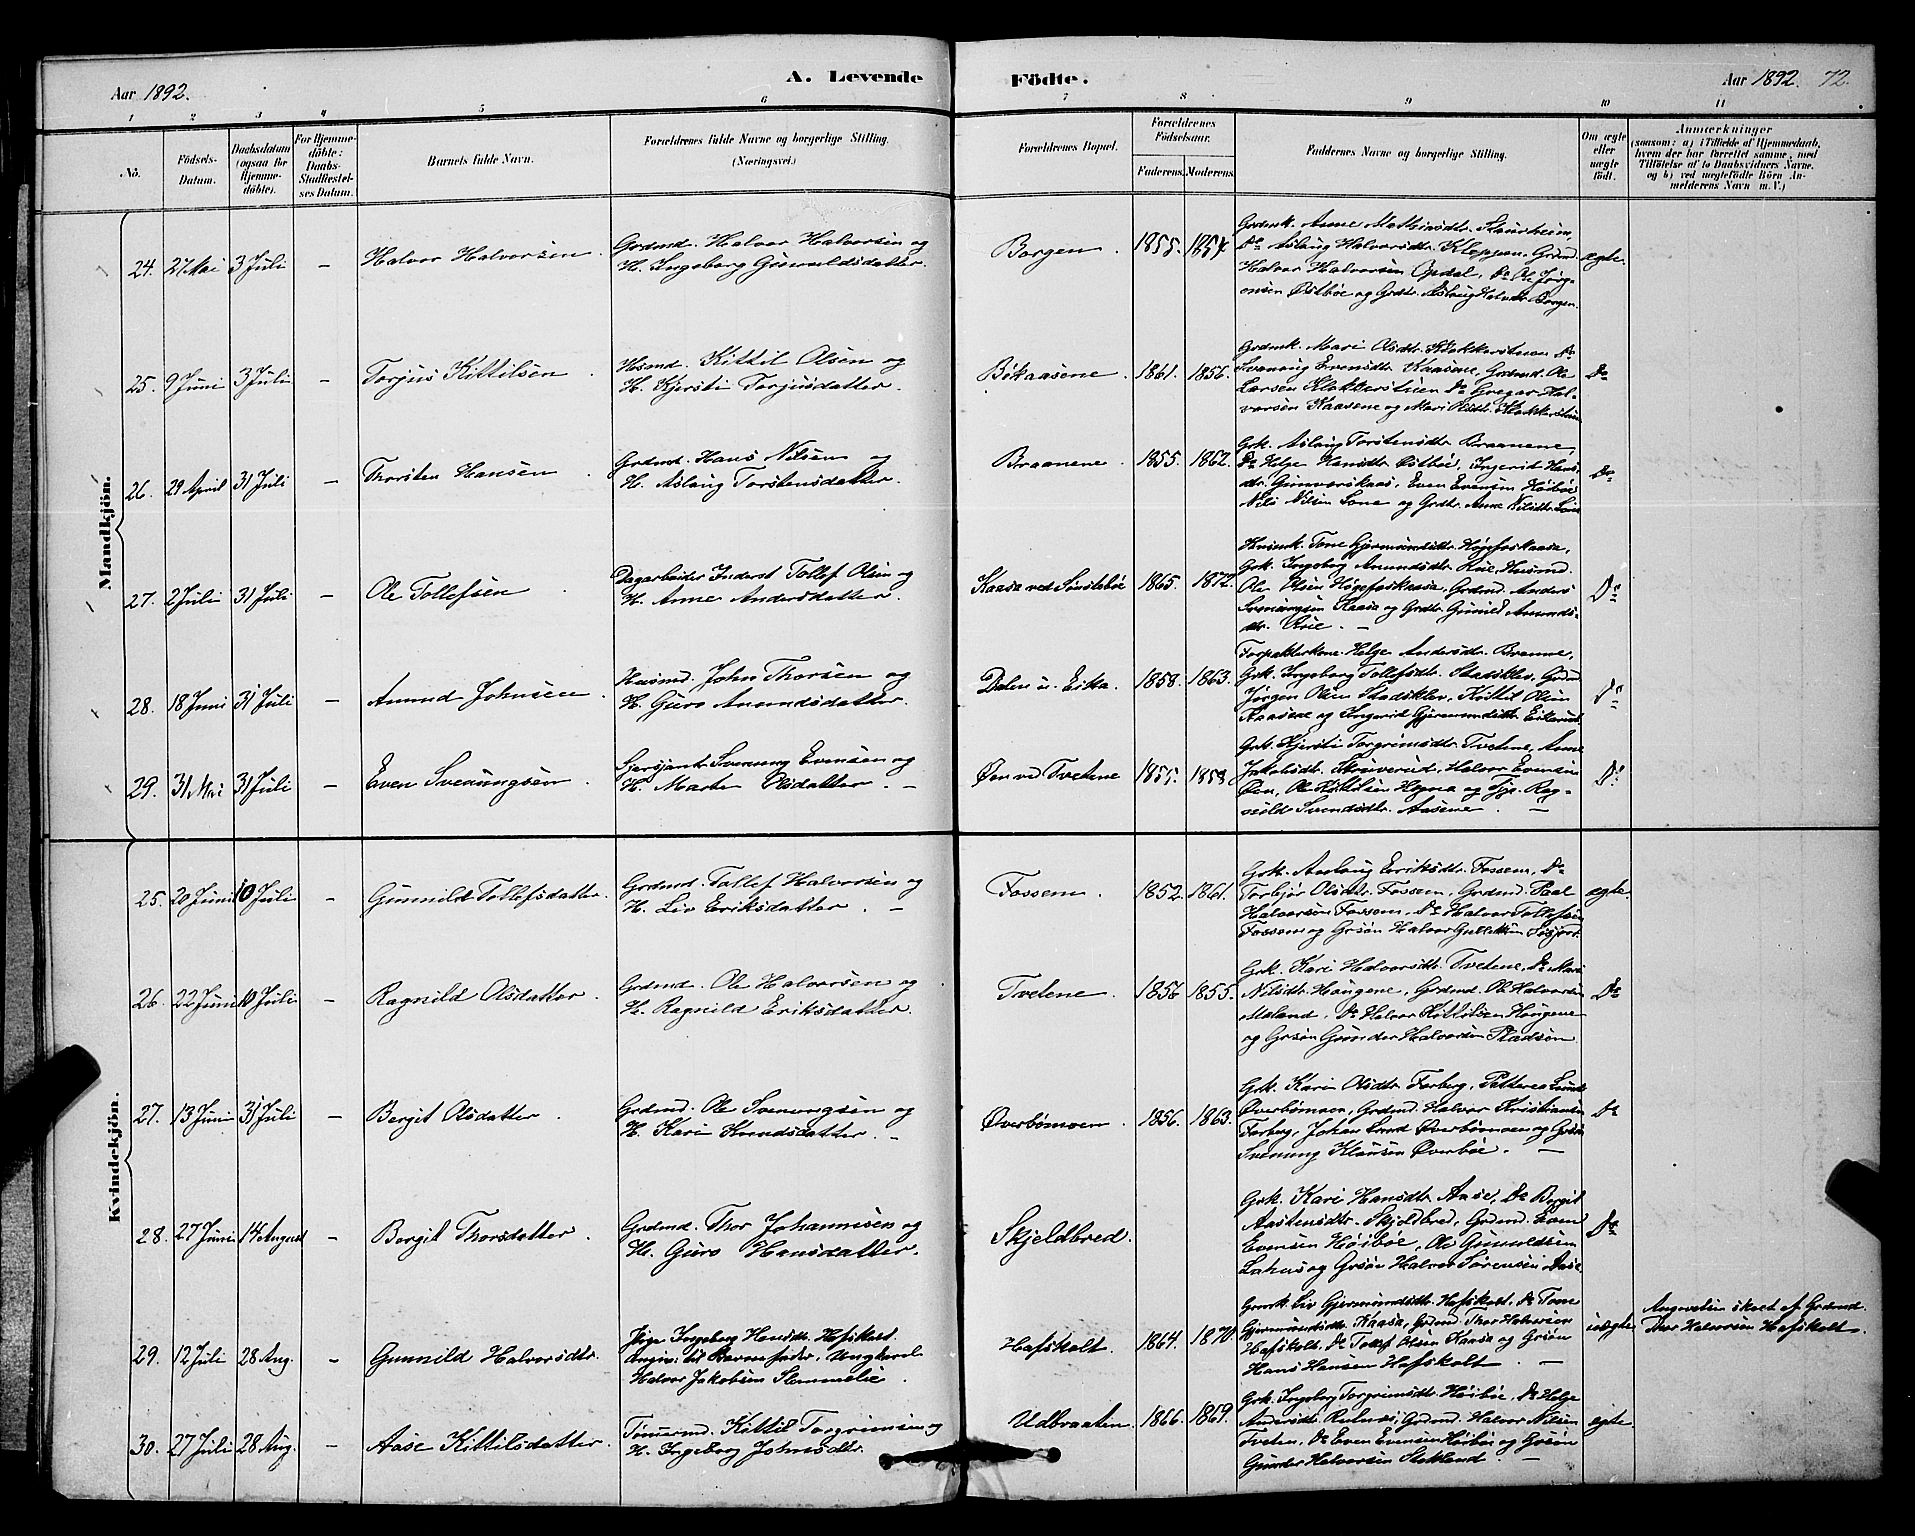 A. Levende Födte.
Aar 1892.
Aar 1892. 72.
1 2 3 4 5 6 7 8 9 10 11
No.
Födsels-Datum.
Daabsdatum (ogsaa for Hjemmedöbte).
For Hjemmedöbte: Daabs-Stadfæstelses Datum.
Barnets fulde Navn.
Forældrenes fulde Navne og borgerlige Stilling. (Næringsvei.)
Forældrenes Bopæl.
Forældrenes Födselsaar.
Faderens. Moderens.
Faddernes Navne og borgerlige Stilling.
Om ægte eller uægte födt.
Anmærkninger
(saasom: a) i Tilfælde af Hjemmedaab, hvem der har forrettet samme, med Tilföielse af to Daabsvidners Navne. og b) ved uægtefödte Börn Anmelderens Navn m. V.)
Mandkjön.
24. 27 Mai 3 Juli – Halvor Halvorsen
Grdmd. Halvor Halvorsen og
H. Ingeborg Gunuldsdatter.
Borgen. 1855. 1854.
Grdmk. Anne Mathisdtr. Staurheim,
Do Aslaug Halvorsdtr. Kleppen, Grdmd.
Halvor Halvorsen Opdal, Do Ole Jørg-
ensen Østbøe og Grdtr. Aslaug Halvdr. Borgen.
ægte.
25. 9 Juni 3 Juli – Torjus Kittilsen
Husmd. Kittil Olsen og
H. Kjersti Torjusdatter.
Bökaasene. 1861. 1856.
Grdmk. Mari Olsdtr. Klokkerstuen, Do
Svenaug Evensdtr. Kaasene, Grdmd. Ole
Larsen Klokkerstuen Do Gregar Hal-
vorsen Kaasene og Mari Olsdtr. Klokkerstuen
Do
26. 29 April 31 Juli – Thorsten Hansen
Grdmd. Hans Nilsen og
H. Aslaug Torstensdatter.
Braanene 1855. 1862.
Grk. Aslaug Torstensdtr. Braanene,
Do Helge Hansdtr. Østbøe, Ingerid Hans-
dtr. Gunvorskaas, Even Evensen Høibøe
Nils Nilsen Lone og Grdtr. Anne Nilsdtr. Lone
Do
27. 2 Juli 31 Juli – Ole Tollefsen
Dagarbeider Inderst Tollef Olsen og
H. Anne Andersdatter.
Kaasa ved Sønstebøe 1865. 1872.
Husmk. Tone Gjermundsdtr. Høgefoskaasa,
Grk. Ingebog Amundsdtr. Rue, Husmd.
Ole Olsen Høgefoskaasa, Grdmd. Anders
Svenungsen Kaasa og Grdtr. Gunild Amunds-
dtr. Rue. –
Do
28. 18 Juni 31 Juli – Amund Johnsen
Husmd. John Thorsen og
H. Guro Amundsdatter.
Dalen u. Eika. 1858. 1863.
Forpakterkone Helge Andersdtr. Braanne,
Grk. Ingeborg Tollefsdtr. Stadsklev, Grdmd
Jørgen Olsen Stadsklev, Kittil Olsen
Kaasene og Ingerid Gjermundsdtr. Eikerud.
Do
29. 31 Mai 31 Juli – Even Sveinungsen
Sersjant Svenung Evensen og
H. Marte Olsdatter. –
Øen ved Tvetene 1855. 1858
Grk. Kjersti Torgrimsdtr. Tvetene, Anne
Jakobsdtr. Skruverud, Halvor Evensen
Øen, Ole Kittilsen Hegna og Pge. Rag-
nild Svendsdtr. Aasene. –
Do
Kvindekjön.
25. 20 Juni 10 Juli – Gunnild Tollefsdatter.
Grdmd. Tollef Halvorsen og
H. Liv Eriksdatter. –
Fossem. 1852. 1861.
Grk. Aaslaug Eriksdtr. Fossem, Do
Torbjør Olsdtr. Fossem, Grdmd. Paal
Halvorsen Fossem, Do Halvor Tollefsen
Fossem og Grsøn Halvor Gulleksen
ægte.
26. 22 Juni 10 Juli – Ragnild Olsdatter.
Grdmd. Ole Halvorsen og
H. Ragnild Eriksdatter.
Tvetene. 1856 1855.
Grk. Kari Halvorsdtr. Tvetene, Do Mari
Nilsdtr. Haugene, Grdmd. Ole Halvorsen
Meland, Do Halvor Kittilsen Haugene
og Grsøn Gunder Halvorsen Pladsen
Do
27. 13 Juni 31 Juli – Bergit Olsdatter.
Grdmd. Ole Svenungsen og
H. Kari Knudsdatter. –
Øverbømoen. 1856. 1863.
Grk. Karen Olsdtr. Forberg,
Øverbømoen, Grdmd. Halvor Kristiansen
Forberg, Johan Lund Øverbømoen og Grsøn
Svenung Klausen Øverbøe. –
Do
28. 27 Juni 14 August – Bergit Thorsdatter.
Grdmd. Thor Johannesen og
H. Guro Hansdatter.
Skjeldbred. 1852.
Grk. Kari Hansdtr. Aase, Do Bergit
Aastensdtr. Skjeldbred, Grdmd. Even
Evensen Høibøe, Ole Gunuldsen
Lahus og Grsøn Halvor Sørensen Aase
Do
29. 12 Juli 28 Aug. – Gunnild Halvorsdtr.
Pige Ingeborg Hansdtr. Hafskolt.
Angiv. til Barnefader, Ungkarl
Halvor Jakobsen Slemmelie.
Hafskolt. 1864. 1870
Grmk. Liv Gjermundsdtr. Hafskolt, Do Tone
Gjermundsdtr. Kaasa, Grdmd. Thor Halvorsen
Hafskolt, Do Tollef Olsen Kaasa og Grsøn
Hans Hansen Hafskolt. –
uægte
Angivelsen skeet af Grdmd.
Thor Halvorsen Hafskolt.
30. 27 Juli 28 Aug. – Aase Kittilsdatter.
Tømermd. Kittil Torgrimsen og
H. Ingeborg Johnsdtr.
Udbraaten. 1866. 1869.
Grk. Ingeborg Torgrimsdtr. Høibøe, Do Helge
Andersdtr. Grdmd. Halvor Nilsen
Tveten, Do Even Evensen Høibøe og Grsøn
Gunder Halvorsen Stokland. –
ægte